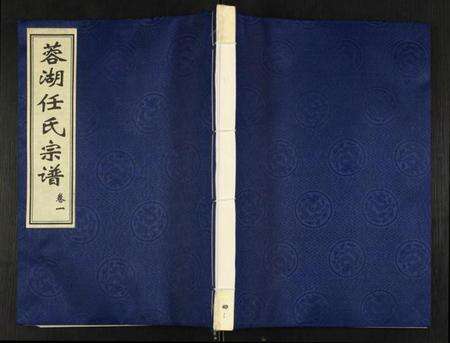 蓉湖任氏宗谱
卷一